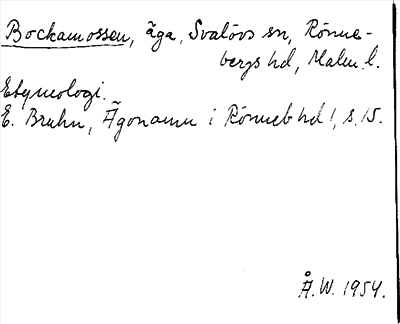 Bockamossen, äga, Svalövs sn, Rönne-
bergs hd, Malm. l.
Etymologi.
E. Bruhn, Ägonamn i Rönneb hd 1, s. 15.
Å.W. 1954.